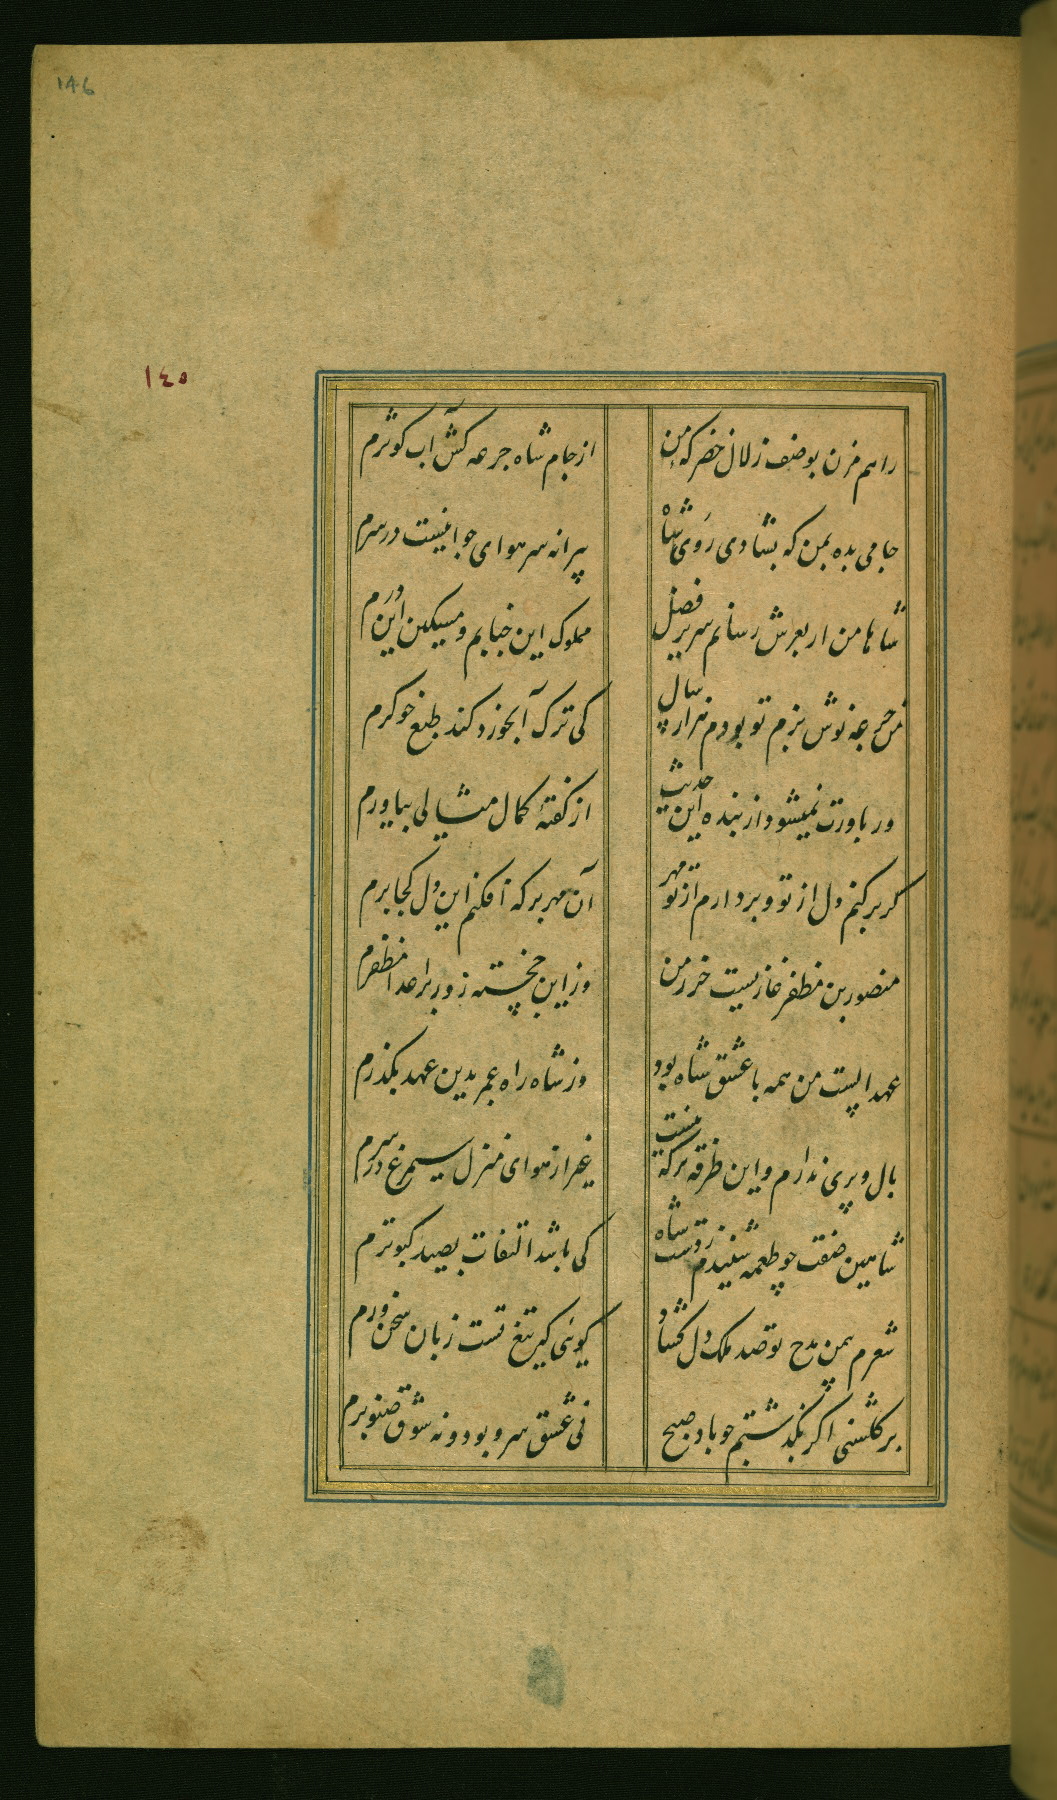 146
١٤٥
راهم مزن بوصف زلال خضر که من
از جام شاه جرعه کش آب کوثرم
جامی بده بمن که بشادی روی شاه
پیرانه سر هوای جوانیست در سرم
شاها من ار بعرش رسانم سریر فضل
مملوک این جنابم و مسکین این درم
من جرعه نوش بزم تو بودم هزار سال
کی ترک آبخورد کند طبع خوکرم
ور باورت نمیشود از بنده این حدیث
از کفتهٔ کمال مثالی بیاورم
کر بر کنم دل از تو و بردارم از تو مهر
آن مهر بر که افکنم این دل کجا برم
منصور بن مظفر غازیست حرز من
وز این خجسته زور بر اعدا مظفرم
عهد الست من همه با عشق شاه بود
وز شاه راه عمر بدین عهد بکذرم
بال و پری ندارم و این طرفه ترکه نیست
غیر از هوای منزل سیمرغ در سرم
شاهین صفت چو طعمه شنیدم ز دست شاه
کی باشد التفات بصید کبوترم
شعرم بیمن مدح تو صد ملک دل کشاد
کوئی که تیغ تست زبان سخن ورم
بر کلشنی اکر بکذشتم چو باد صبح
نی عشق سرو بود و نه شوق صنوبرم